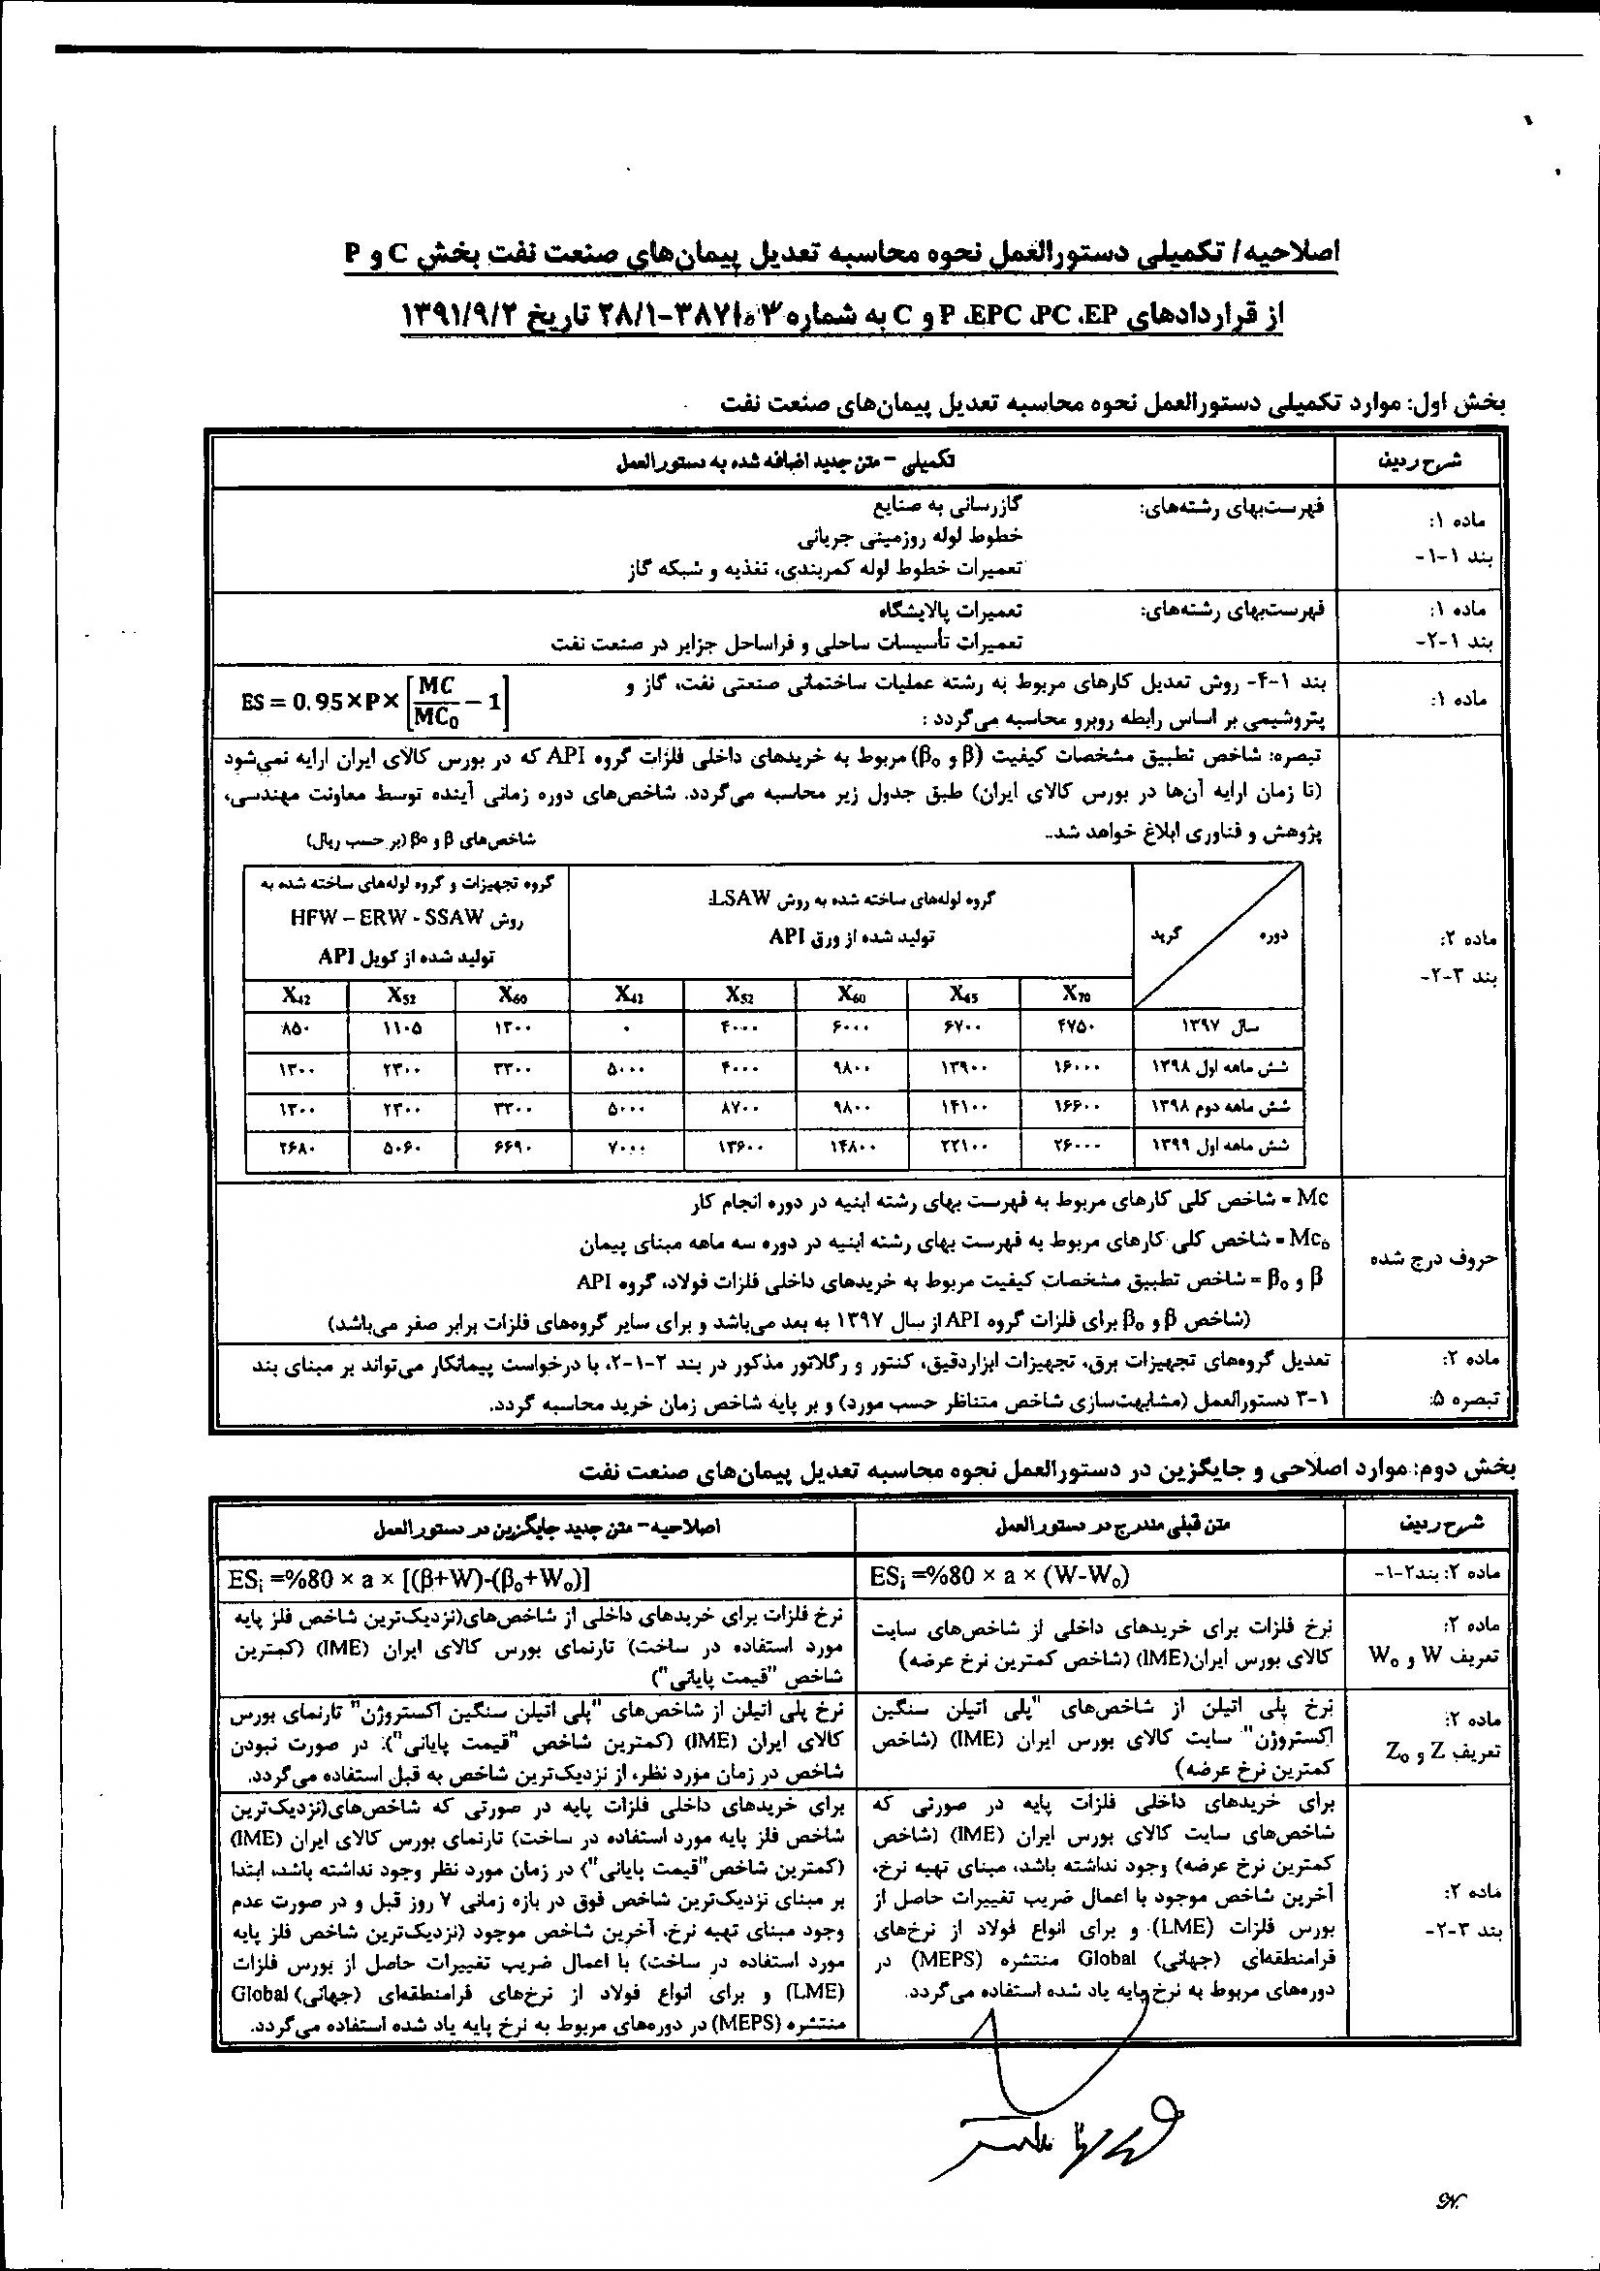 اصلاحیه/ تکمیلی دستورالعمل نحوه محاسبه تعدیل پیمان‌های صنعت نفت بخش C و P
از قراردادهای P ،EPC ،PC ،EP و C به شماره ۲۸/۱-۳۸۷۱۰۳ تاریخ ۱۳۹۱/۹/۲
بخش اول: موارد تکمیلی دستورالعمل نحوه محاسبه تعدیل پیمان‌های صنعت نفت
شرح ردیف
تکمیلی – متن جدید اضافه شده به دستورالعمل
ماده ۱:
بند ۱-۱-
فهرست‌بهای رشته‌های: گازرسانی به صنایع
خطوط لوله روزمینی جریانی
تعمیرات خطوط لوله کمربندی، تغذیه و شبکه گاز
ماده ۱:
بند ۱-۲-
فهرست‌بهای رشته‌های: تعمیرات پالایشگاه
تعمیرات تأسیسات ساحلی و فراساحل جزایر در صنعت نفت
ماده ۱:
بند ۱-۴- روش تعدیل کارهای مربوط به رشته عملیات ساختمانی صنعتی نفت، گاز و
پتروشیمی بر اساس رابطه روبرو محاسبه می‌گردد :
ES = 0.95×P×[MC/MC₀ − 1]
ماده ۲:
بند ۳-۲-
تبصره: شاخص تطبیق مشخصات کیفیت (β و β₀) مربوط به خریدهای داخلی فلزات گروه API که در بورس کالای ایران ارایه نمی‌شود
(تا زمان ارایه آن‌ها در بورس کالای ایران) طبق جدول زیر محاسبه می‌گردد. شاخص‌های دوره زمانی آینده توسط معاونت مهندسی،
پژوهش و فناوری ابلاغ خواهد شد.
شاخص‌های β و β₀ (بر حسب ریال)
دوره
گرید
گروه لوله‌های ساخته شده به روش LSAW:
تولید شده از ورق API
گروه تجهیزات و گروه لوله‌های ساخته شده به
روش HFW – ERW - SSAW
تولید شده از کویل API
X₇₀ X₆₅ X₆₀ X₅₂ X₄₂ X₆₀ X₅₂ X₄₂
سال ۱۳۹۷ ۴۷۵۰ ۶۷۰۰ ۶۰۰۰ ۴۰۰۰ ۰ ۱۳۰۰ ۱۱۰۵ ۸۵۰
شش ماهه اول ۱۳۹۸ ۱۶۰۰۰ ۱۳۹۰۰ ۹۸۰۰ ۴۰۰۰ ۵۰۰۰ ۳۳۰۰ ۲۳۰۰ ۱۳۰۰
شش ماهه دوم ۱۳۹۸ ۱۶۶۰۰ ۱۴۱۰۰ ۹۸۰۰ ۸۷۰۰ ۵۰۰۰ ۳۳۰۰ ۲۳۰۰ ۱۳۰۰
شش ماهه اول ۱۳۹۹ ۲۶۰۰۰ ۲۲۱۰۰ ۱۴۸۰۰ ۱۳۶۰۰ ۷۰۰۰ ۶۶۹۰ ۵۰۶۰ ۲۶۸۰
حروف درج شده
Mc = شاخص کلی کارهای مربوط به فهرست بهای رشته ابنیه در دوره انجام کار
Mc₀ = شاخص کلی کارهای مربوط به فهرست بهای رشته ابنیه در دوره سه ماهه مبنای پیمان
β و β₀ = شاخص تطبیق مشخصات کیفیت مربوط به خریدهای داخلی فلزات فولاد، گروه API
(شاخص β و β₀ برای فلزات گروه API از سال ۱۳۹۷ به بعد می‌باشد و برای سایر گروه‌های فلزات برابر صفر می‌باشد)
ماده ۲:
تبصره ۵:
تعدیل گروه‌های تجهیزات برق، تجهیزات ابزاردقیق، کنتور و رگلاتور مذکور در بند ۲-۱-۲، با درخواست پیمانکار می‌تواند بر مبنای بند
۳-۱ دستورالعمل (مشابهت‌سازی شاخص متناظر حسب مورد) و بر پایه شاخص زمان خرید محاسبه گردد.
بخش دوم: موارد اصلاحی و جایگزین در دستورالعمل نحوه محاسبه تعدیل پیمان‌های صنعت نفت
شرح ردیف
متن قبلی مندرج در دستورالعمل
اصلاحیه- متن جدید جایگزین در دستورالعمل
ماده ۲: بند۲-۱-
ESᵢ =%80 × a × (W-W₀)
ESᵢ =%80 × a × [(β+W)-(β₀+W₀)]
ماده ۲:
تعریف W و W₀
نرخ فلزات برای خریدهای داخلی از شاخص‌های سایت
کالای بورس ایران(IME) (شاخص کمترین نرخ عرضه)
نرخ فلزات برای خریدهای داخلی از شاخص‌های(نزدیک‌ترین شاخص فلز پایه
مورد استفاده در ساخت) تارنمای بورس کالای ایران (IME) (کمترین
شاخص "قیمت پایانی")
ماده ۲:
تعریف Z و Z₀
نرخ پلی اتیلن از شاخص‌های "پلی اتیلن سنگین
اکستروژن" سایت کالای بورس ایران (IME) (شاخص
کمترین نرخ عرضه)
نرخ پلی اتیلن از شاخص‌های "پلی اتیلن سنگین اکستروژن" تارنمای بورس
کالای ایران (IME) (کمترین شاخص "قیمت پایانی"): در صورت نبودن
شاخص در زمان مورد نظر، از نزدیک‌ترین شاخص به قبل استفاده می‌گردد.
ماده ۲:
بند ۳-۲-
برای خریدهای داخلی فلزات پایه در صورتی که
شاخص‌های سایت کالای بورس ایران (IME) (شاخص
کمترین نرخ عرضه) وجود نداشته باشد، مبنای تهیه نرخ،
آخرین شاخص موجود با اعمال ضریب تغییرات حاصل از
بورس فلزات (LME) و برای انواع فولاد از نرخ‌های
فرامنطقه‌ای (جهانی) Global منتشره (MEPS) در
دوره‌های مربوط به نرخ پایه یاد شده استفاده می‌گردد.
برای خریدهای داخلی فلزات پایه در صورتی که شاخص‌های(نزدیک‌ترین
شاخص فلز پایه مورد استفاده در ساخت) تارنمای بورس کالای ایران (IME)
(کمترین شاخص"قیمت پایانی") در زمان مورد نظر وجود نداشته باشد، ابتدا
بر مبنای نزدیک‌ترین شاخص فوق در بازه زمانی ۷ روز قبل و در صورت عدم
وجود مبنای تهیه نرخ، آخرین شاخص موجود (نزدیک‌ترین شاخص فلز پایه
مورد استفاده در ساخت) با اعمال ضریب تغییرات حاصل از بورس فلزات
(LME) و برای انواع فولاد از نرخ‌های فرامنطقه‌ای (جهانی) Global
منتشره (MEPS) در دوره‌های مربوط به نرخ پایه یاد شده استفاده می‌گردد.